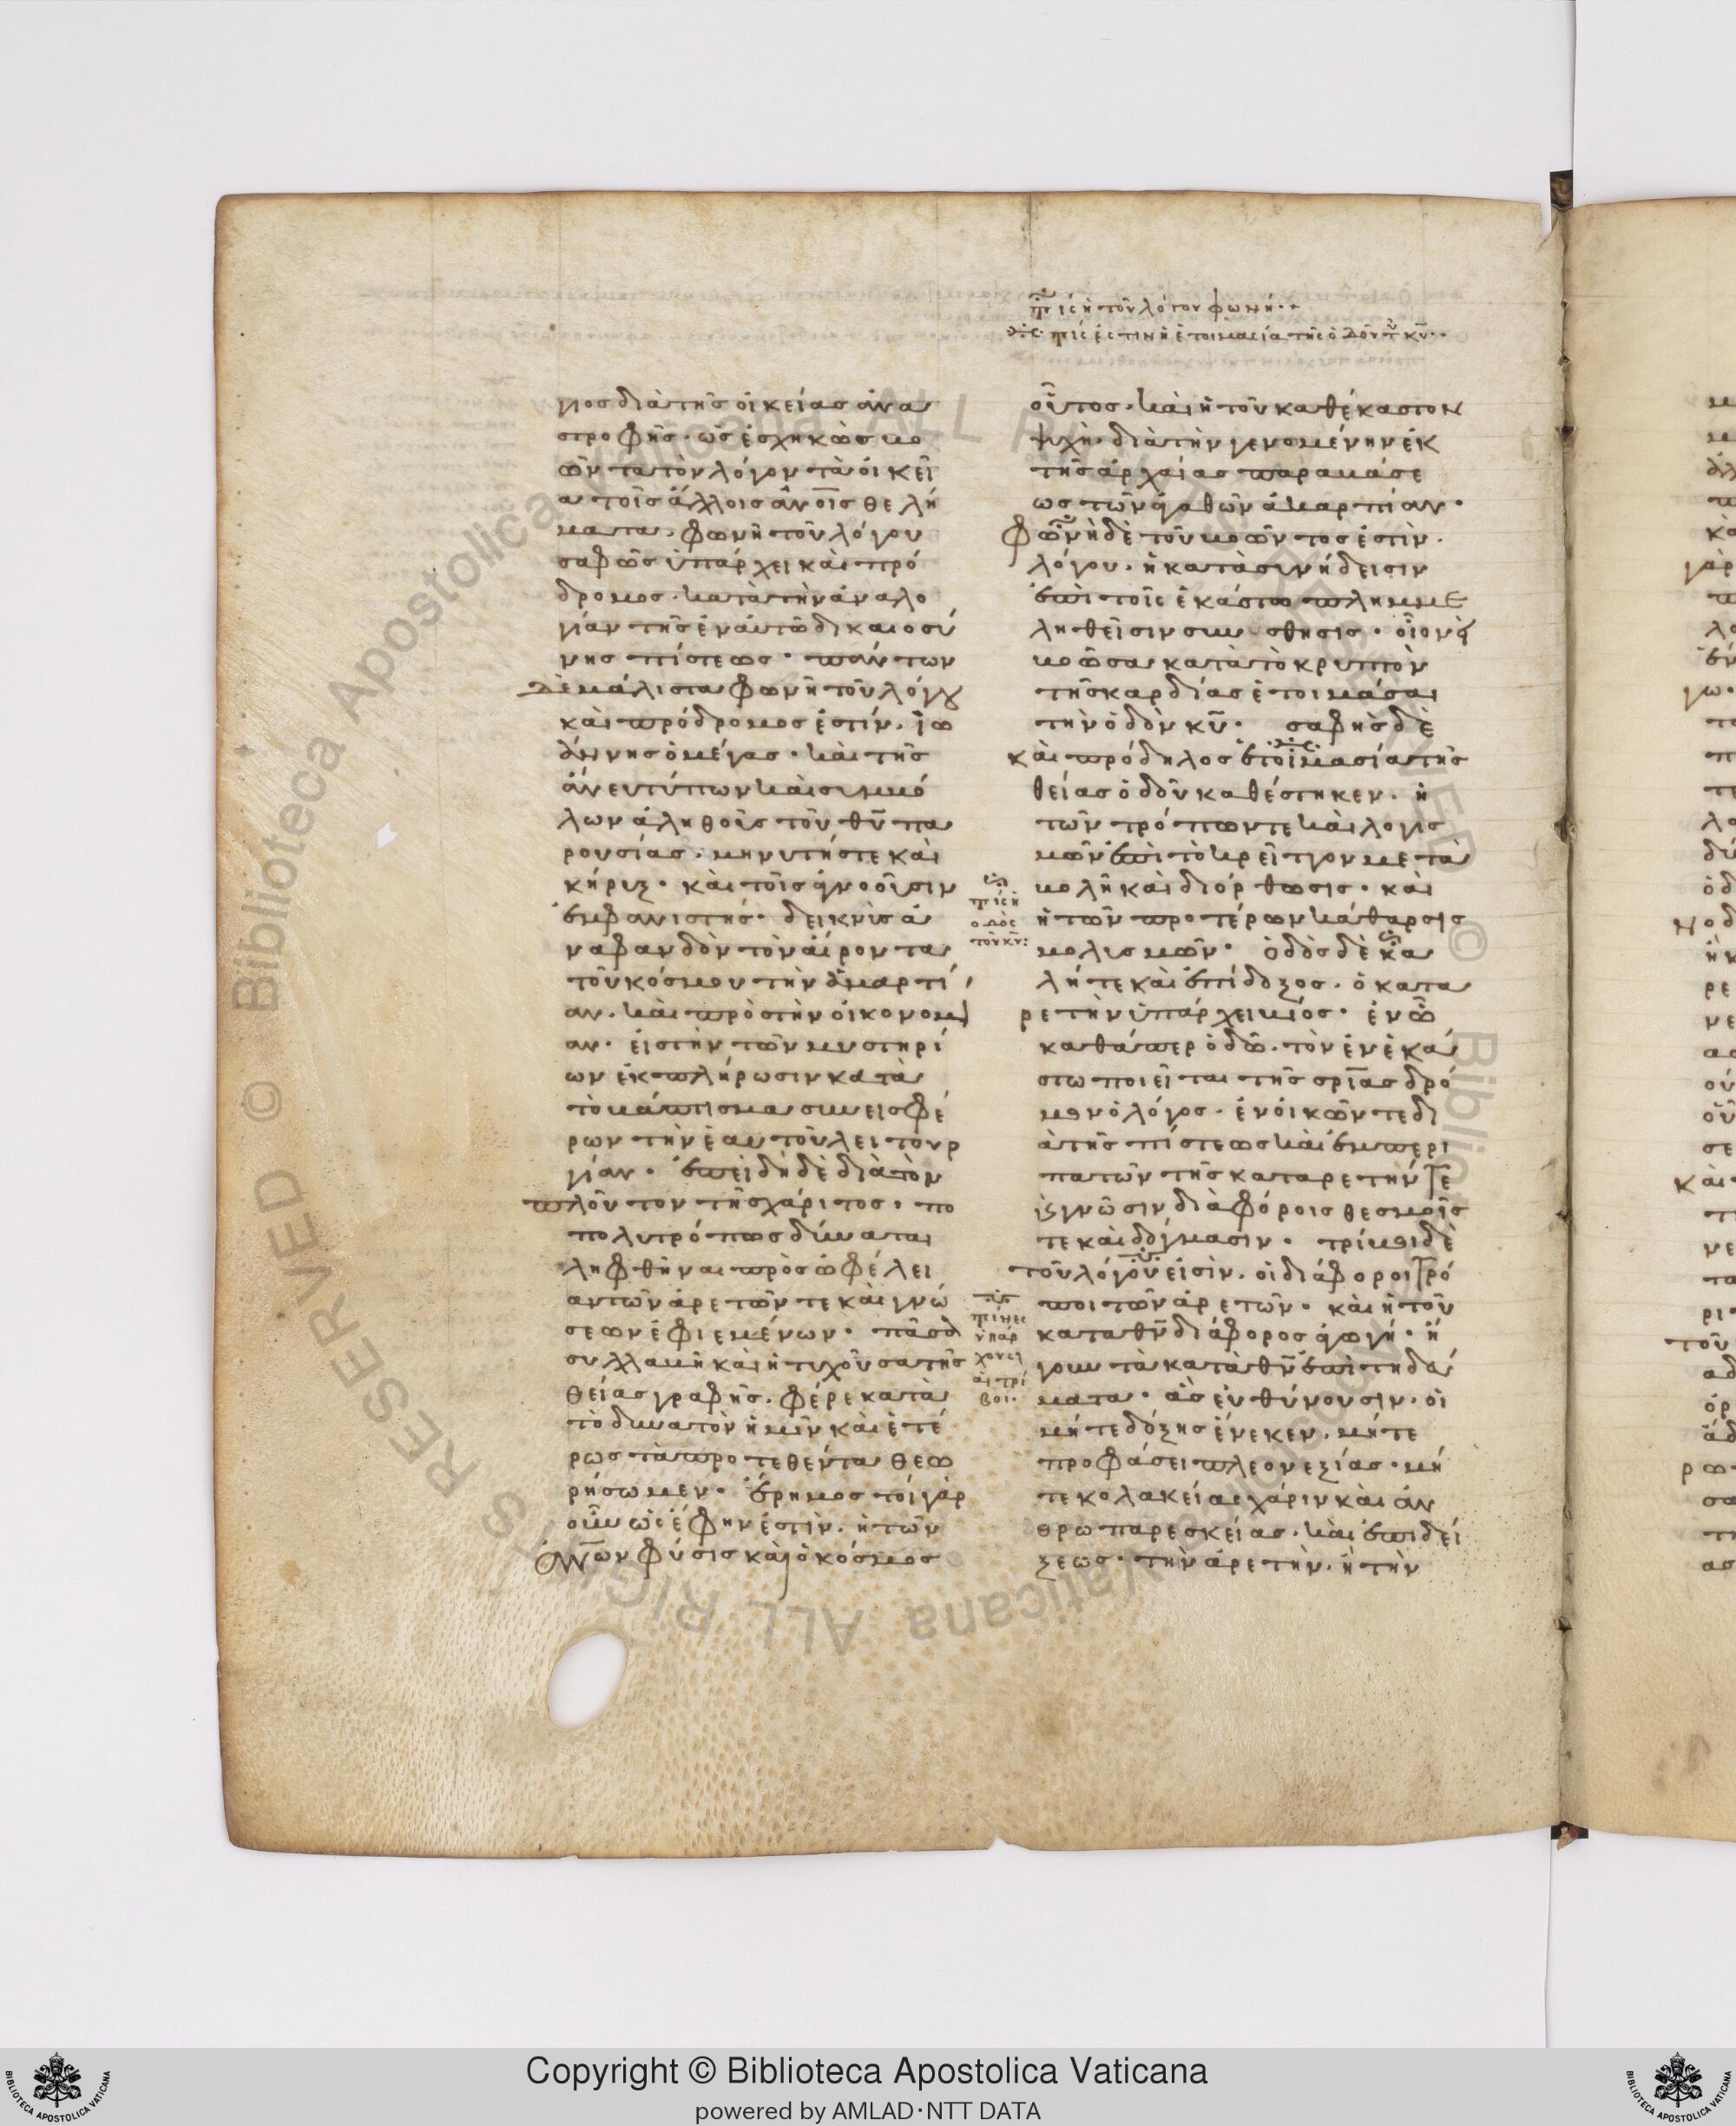 τίς ἡ τοῦ λόγου φωνή·
τίς ἐστιν ἡ ἑτοιμασία τῆς ὁδοῦ τοῦ κυ·
γιος διὰ τῆς οἰκείας ἀνα
στροφῆς· ὡς ἐσχηκὼς βο
ῶντα τὸν λόγον τὰ οἰκεῖ
α τοῖς ἄλλοις ἀνοις θελή
ματα· φωνὴ τοῦ λόγου
σαφῶς ὑπάρχει καὶ πρό
δρομος· κατὰ τὴν ἀναλο
γίαν τῆς ἐν αὐτῶ δικαιοσύ
νης πίστεως· πάντων
δὲ μάλιστα φωνὴ τοῦ λόγου
καὶ πρόδρομος ἐστίν· ἰω
άννης ὁ μέγας· καὶ τῆς
ἄνευ τύπων καὶ συμβό
λων ἀληθοῦς τοῦ θυ πα
ρουσίας· μηνυτής τε καὶ
κήρυξ· καὶ τοῖς ἀγνοοῦσιν
ἐμφανιστής· δεικνὺς ἀ
ναφανδὸν τὸν αἴροντα
τοῦ κόσμου τὴν ἁμαρτί
αν· καὶ πρὸς τὴν οἰκονομί
αν· εἰς τὴν τῶν μυστηρί
ων ἐκπλήρωσιν κατὰ
τὸ βάπτισμα συνεισφέ
ρων τὴν ἑαυτοῦ λειτουρ
γίαν· ἐπειδὴ δὲ διὰ τὸν
πλοῦτον τῆς χάριτος· πο
πολυτρόπως δύναται
ληφθῆναι πρὸς ὠφέλει
αν τῶν ἀρετῶν τε καὶ γνώ
σεων ἐφιεμένων· πᾶσα
συλλαβὴ καὶ ἡ τυχοῦσα τῆς
θείας γραφῆς· φέρε κατὰ
τὸ δυνατὸν ἡμῖν καὶ ἑτέ
ρως τὰ προτεθέντα θεω
ρήσωμεν· ἔρημος τοιγαρ
οῦν ὡς ἔφην ἐστὶν· ἡ τῶν
ἀνων φύσις καὶ ὁ κόσμος
τίς ἡ
ὁδὸς
τοῦ κυ·
τίνες
ὑπάρ
χουσι
αἱ τρί
βοι·
οὗτος· καὶ ἡ τοῦ καθέκαστον
ψυχὴ· διὰ τὴν γενομένην ἐκ
τῆς ἀρχαίας παραβάσε
ως τῶν ἀγαθῶν ἀκαρπίαν·
φωνὴ δὲ τοῦ βοῶντος ἐστὶν·
λόγου· ἡ κατὰ συνείδεισιν
ἐπὶ τοῖς ἑκάστω πλημμε
ληθεῖσιν συναίσθησις· οἱονεὶ
βοῶσα κατὰ τὸ κρυπτὸν
τῆς καρδίας ἑτοιμάσαι
τὴν ὁδὸν κυ· σαφὴς δὲ
καὶ πρόδηλος ἑτοιμασία τῆς
θείας ὁδοῦ καθέστηκεν· ἡ
τῶν τρόπων τε καὶ λογισ
μῶν ἐπὶ τὸ κρεῖττον μετα
βολὴ καὶ διόρθωσις· καὶ
ἡ τῶν προτέρων κάθαρσις
μολυσμῶν· ὁδὸς δὲ κα
λή τε καὶ ἐπίδοξος· ὁ κατα
ρετὴν ὑπάρχει βίος· ἐν ῶ
καθάπερ ὁδῶ· τὸν ἐν ἑκά
στω ποιεῖται τῆς σριας δρό
μον ὁ λόγος· ἐνοικῶν τε δι
ὰ τῆς πίστεως καὶ ἐμπερι
πατῶν τῆς κατ αρετήν τε
καὶ γνῶσιν διαφόροις θεσμοῖς
τε καὶ δόγμασιν· τρίβοι δὲ
τοῦ λόγου εἰσὶν· οἱ διάφοροι τρό
ποι τῶν ἀρετῶν· καὶ ἡ τοῦ
κατα θν διάφορος ἀγωγή· ἤ
γουν τὰ κατὰ θν ἐπιτηδεύ
ματα· ἃς εὐθύνουσιν· οἱ
μήτε δόξης ἕνεκεν· μήτε
προφάσει πλεονεξίας· μή
τε κολακείας χάριν καὶ ἀν
θρωπαρεσκείας· καὶ ἐπιδεί
ξεως· τὴν ἀρετὴν· ἢ τὴν
Copyright © Biblioteca Apostolica Vaticana
powered by AMLAD·NTT DATA